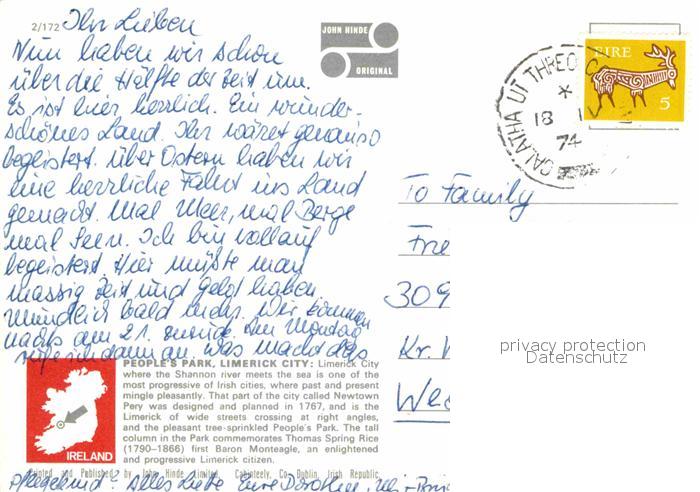 2/172
Ihr Lieben
Nun haben wir schon
über die Hälfte der Zeit um.
Es ist hier herrlich. Ein wunder-
schönes Land. Ihr wäret genauso
begeistert. Über Ostern haben wir
eine herrliche Fahrt ins Land
gemacht. Mal Meer, mal Berge
mal Seen. Ich bin vollauf
begeistert. Hier müßte man
massig Zeit und Geld haben
mündlich bald mehr. Wir kommen
nachts am 21. zurück. Am Montag
rufe ich dann an. Was macht das
Pflegekind? Alles Liebe Eure Dorothea
JOHN HINDE
ORIGINAL
EIRE
5
CALATHA UT THREO
18 IV
74
To Family
Fre
309
Kr. V
We
privacy protection
Datenschutz
PEOPLE'S PARK, LIMERICK CITY: Limerick City
where the Shannon river meets the sea is one of the
most progressive of Irish cities, where past and present
mingle pleasantly. That part of the city called Newtown
Pery was designed and planned in 1767, and is the
Limerick of wide streets crossing at right angles,
and the pleasant tree-sprinkled People's Park. The tall
column in the Park commemorates Thomas Spring Rice
(1790–1866) first Baron Monteagle, an enlightened
and progressive Limerick citizen.
IRELAND
Printed and Published by John Hinde Limited, Cabinteely, Co. Dublin, Irish Republic